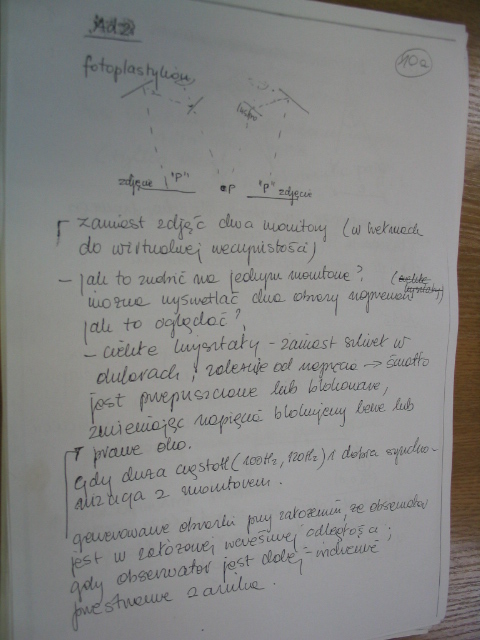 Ad 2)
10a
fotoplastykon
lustro
zdjęcie "P" "P" zdjęcie
zamiast zdjęć dwa monitory (w hełmach
do wirtualnej rzeczywistości)
- jak to zrobić na jednym monitorze?
można wyświetlać dwa obrazy naprzemian
jak to oglądać?
- ciekłe kryształy - zamiast szkieł w
okularach, zależnie od napięcia → światło
jest przepuszczone lub blokowane,
zmieniając napięcie blokujemy lewe lub
prawe oko.
Gdy duża częstotl (100Hz, 120Hz) i dobra synchro-
nizacja z monitorem.
generowane obrazki przy założeniu, że obserwator
jest w założonej wcześniej odległości;
gdy obserwator jest dalej - wrażenie
przestrzenne zanika.